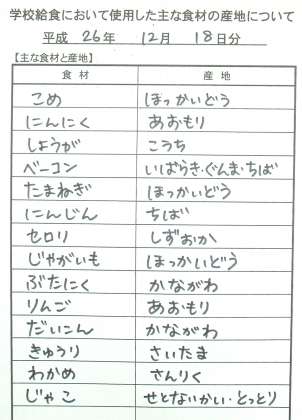 学校給食において使用した主な食材の産地について
平成 26年 12月 18日分
【主な食材と産地】
食材 産地
こめ ほっかいどう
にんにく あおもり
しょうが こうち
ベーコン いばらき・ぐんま・ちば
たまねぎ ほっかいどう
にんじん ちば
セロリ しずおか
じゃがいも ほっかいどう
ぶたにく かながわ
りんご あおもり
だいこん かながわ
きゅうり さいたま
わかめ さんりく
じゃこ せとないかい・とっとり